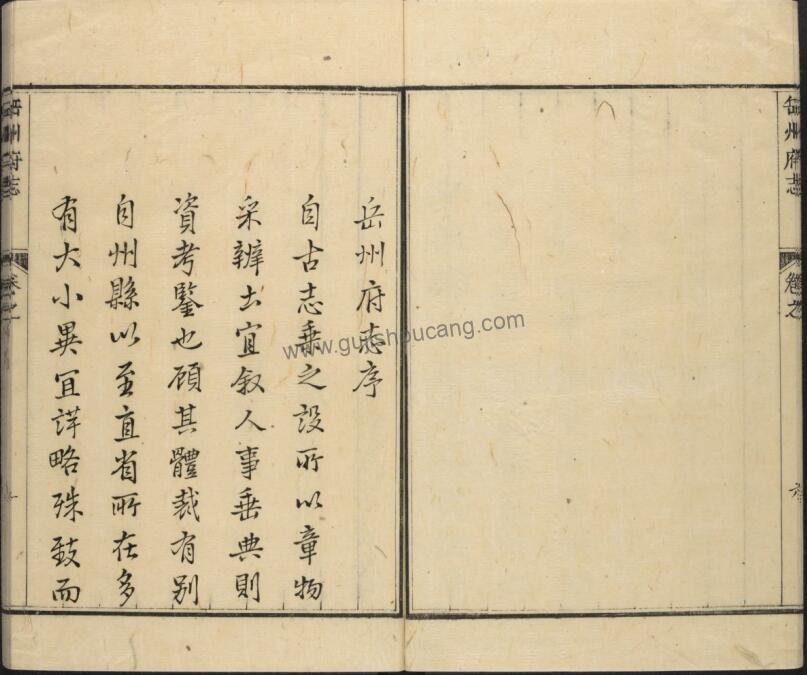 岳州府志
卷之
岳州府志序
自古志乗之設所以章物
采辨土宜叙人事垂典則
資考鑒也顧其體裁有别
自州縣以至直省所在多
有大小異宜詳略殊致而
岳州府志
卷之
www.gujishoucang.com